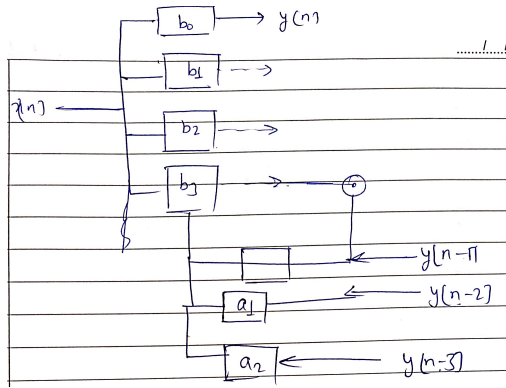 b0 y(n)
b1
x[n]
b2
b3
y[n-1]
a1 y[n-2]
a2 y[n-3]